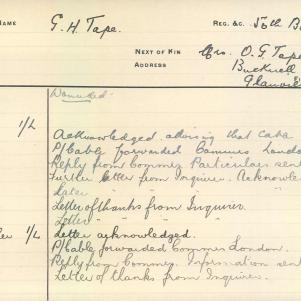 NAME G. H. Tape. REG. &C. 50th B
NEXT OF KIN Mrs. O. G. Tape
ADDRESS Bucknell
Glanvil
Wounded.
1/L Acknowledged advising that Cable
P/Cable forwarded Commrs London
Reply from Commrs Particulars sent
Further letter from Inquirer. Acknowle
Later " "
Letter of thanks from Inquirer.
Letter " "
1/L Letter acknowledged.
P/Cable forwarded Commrs London.
Reply from Commrs. Information sent
Letter of thanks from Inquirer.